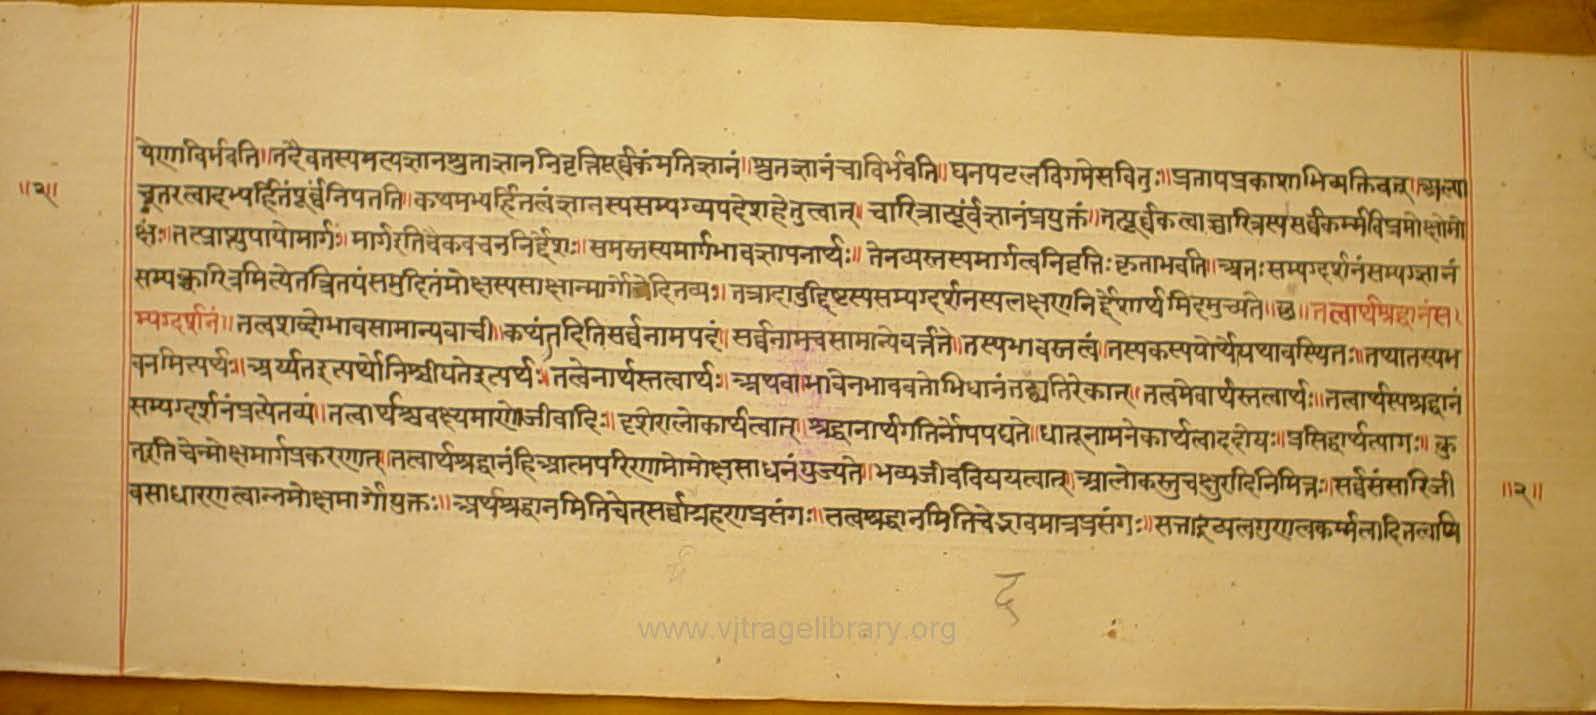 येणाविर्भवति॥तदैवतस्यमत्यज्ञानश्रुताज्ञाननिवृत्तिपूर्वकंमतिज्ञानं॥श्रुतज्ञानंचाविर्भवति॥घनपटलविगमेसवितुः॥प्रतापप्रकाशाभिव्यक्तिवत्॥अल्पा
॥२॥
च्तरत्वादभ्यर्हितंपूर्वंनिपतति॥कथमभ्यर्हितत्वंज्ञानस्यसम्यग्व्यपदेशहेतुत्वात्॥चारित्रात्पूर्वंज्ञानंप्रयुक्तं॥तत्पूर्वकत्वाच्चारित्रस्यसर्वकर्म्मविप्रमोक्षोमो
क्षः॥तत्प्राप्त्युपायोमार्गः॥मार्गइतिचैकवचननिर्द्देशः॥समस्तस्यमार्गभावज्ञापनार्थः॥तेनव्यस्तस्यमार्गत्वनिवृत्तिःकृताभवति॥अतःसम्यग्दर्शनंसम्यग्ज्ञानं
सम्यक्चारित्रमित्येतत्त्रितयंसमुदितंमोक्षस्यसाक्षान्मार्गोवेदितव्यः॥तत्रादावुद्दिष्टस्यसम्यग्दर्शनस्यलक्षणनिर्द्देशार्थमिदमुच्यते॥छ॥तत्वार्थश्रद्धानंस
म्यग्दर्शनं॥तत्वशब्दोभावसामान्यवाची॥कथंतदितिसर्वनामपदं॥सर्वनामचसामान्येवर्त्तते॥तस्यभावस्तत्वं॥तस्यकस्ययोर्थोयथावस्थितः॥तथातस्यभ
वनमित्यर्थः॥अर्य्यतइत्यर्थोनिश्चीयतेइत्यर्थः॥तत्वेनार्थस्तत्वार्थः॥अथवाभावेनभाववतोभिधानंतद्व्यतिरेकात्॥तत्वमेवार्थस्तत्वार्थः॥तत्वार्थस्यश्रद्धानं
सम्यग्दर्शनंप्रत्येतव्यं॥तत्वार्थश्चवक्ष्यमाणोजीवादिः॥दृशेरालोकार्थत्वात्॥श्रद्धानार्थगतिर्नोपपद्यते॥धातूनामनेकार्थत्वाददोषः॥प्रसिद्धार्थत्यागः॥कु
तइतिचेन्मोक्षमार्गप्रकरणात्॥तत्वार्थश्रद्धानंहिआत्मपरिणामोमोक्षसाधनंयुज्यते॥भव्यजीवविषयत्वात्॥आलोकस्तुचक्षुरादिनिमित्तः॥सर्वसंसारिजी
वसाधारणत्वान्नमोक्षमार्गोयुक्तः॥अर्थश्रद्धानमितिचेत्सर्वार्थग्रहणप्रसंगः॥तत्वश्रद्धानमितिचेद्भावमात्रप्रसंगः॥सत्ताद्रव्यत्वगुणत्वकर्म्मत्वादितत्वमि
॥२॥
www.vjtragelibrary.org